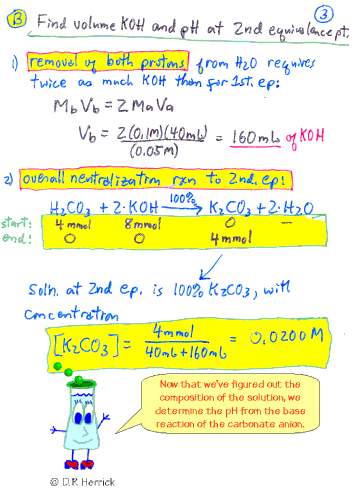 B Find volume KOH and pH at 2nd equivalence pt. 3
1) removal of both protons from H2O requires
twice as much KOH than for 1st. ep:
MbVb = 2MaVa
Vb = 2(0.1M)(40mL) / (0.05M) = 160mL of KOH
2) overall neutralization rxn to 2nd. ep:
H2CO3 + 2·KOH 100%→ K2CO3 + 2·H2O
start: 4 mmol 8 mmol 0 —
end: 0 0 4 mmol
Soln. at 2nd ep. is 100% K2CO3, with
concentration
[K2CO3] = 4 mmol / 40mL+160mL = 0.0200 M
Now that we've figured out the
composition of the solution, we
determine the pH from the base
reaction of the carbonate anion.
© D.R. Herrick